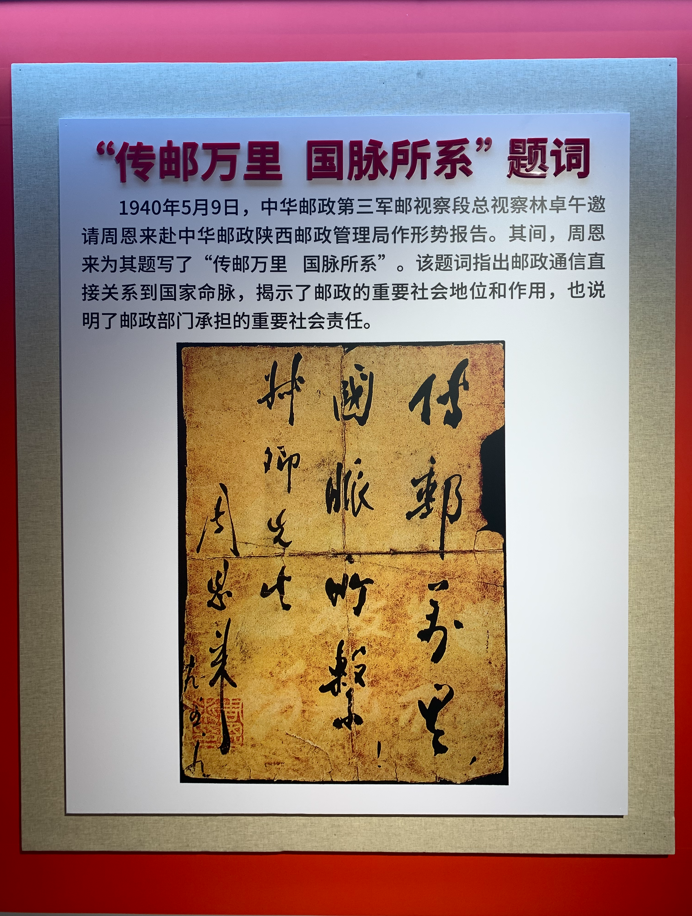 “传邮万里 国脉所系”题词
1940年5月9日，中华邮政第三军邮视察段总视察林卓午邀
请周恩来赴中华邮政陕西邮政管理局作形势报告。其间，周恩
来为其题写了“传邮万里 国脉所系”。该题词指出邮政通信直
接关系到国家命脉，揭示了邮政的重要社会地位和作用，也说
明了邮政部门承担的重要社会责任。
傳郵万里，
國脈所繫！
先生
周恩来